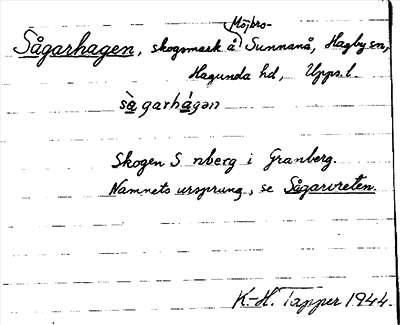 Möjbro-
Sågarhagen, skogsmark å Sunnanå, Hagby sn,
Hagunda hd, Upps. l.
sàgarhágan
Skogen S nberg i Granberg.
Namnets ursprung, se Sågarvreten.
K.-H. Tapper 1944.